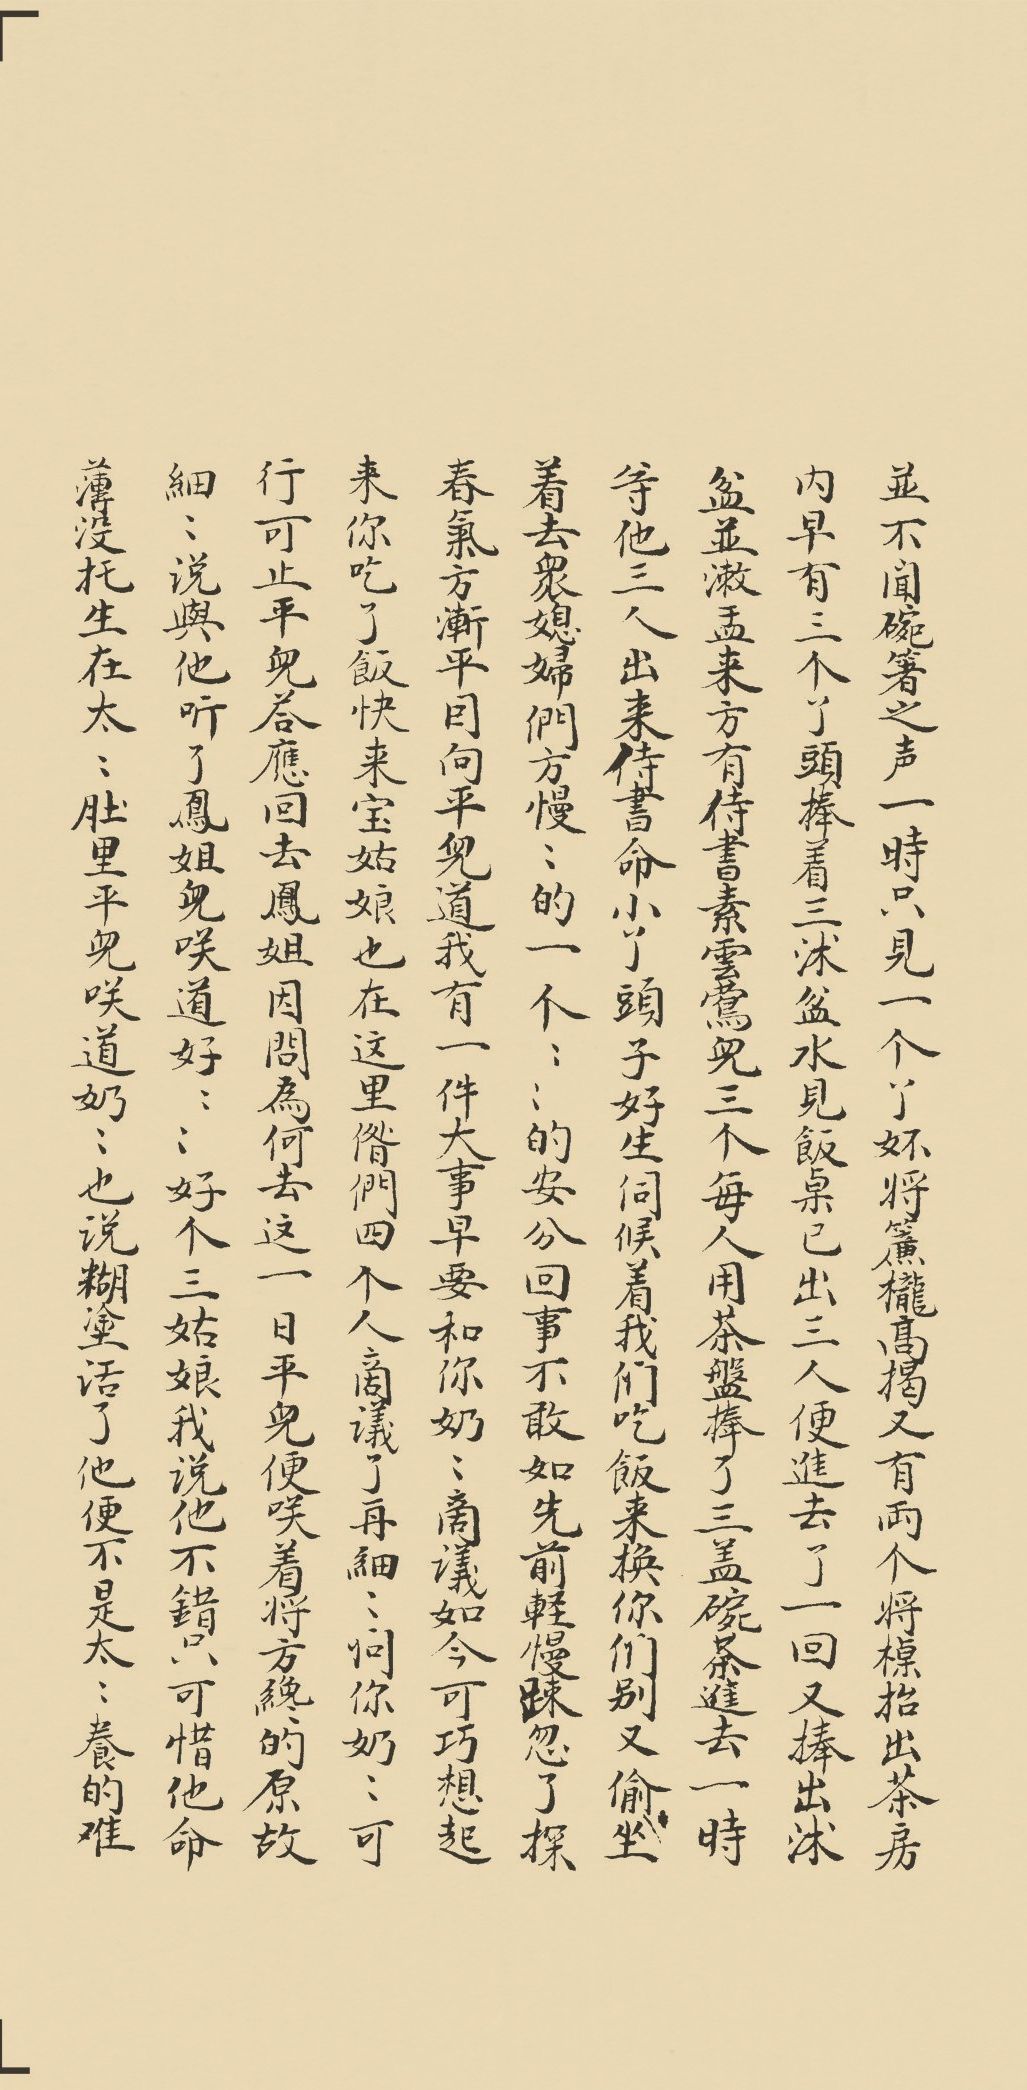 並不闻碗箸之声一時只見一个丫妚将簾櫳髙揭又有両个将槕抬出茶房
内早有三个丫頭捧着三沭盆水見飯桌已出三人便進去了一回又捧出沭
盆並漱盂来方有侍書素雲鶯兒三个每人用茶盤捧了三盖碗茶進去一時
等他三人出来侍書命小丫頭子好生伺候着我们吃飯来換你们别又偷坐
着去衆媳婦們方慢〻的一个〻〻的安分回事不敢如先前軽慢踈忽了探
春氣方漸平因向平兒道我有一件大事早要和你奶〻商議如今可巧想起
来你吃了飯快来宝姑娘也在这里偺們四个人商議了再細〻问你奶〻可
行可止平兒荅應回去鳳姐因問為何去这一日平兒便咲着将方纔的原故
細〻说與他听了鳳姐兒咲道好〻〻好个三姑娘我说他不錯只可惜他命
薄没托生在太〻肚里平兒咲道奶〻也说糊塗话了他便不是太〻養的难